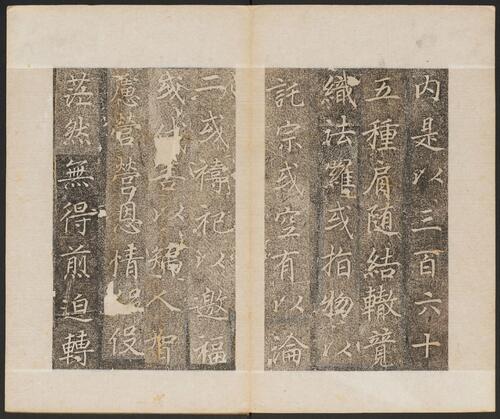 内是以三百六十
五種肩随結轍競
織法羅或指物以
託宗或空有以淪
二或禱祀以邀福
或以矯人智
慮營營恩情役
茫然無得煎迫轉